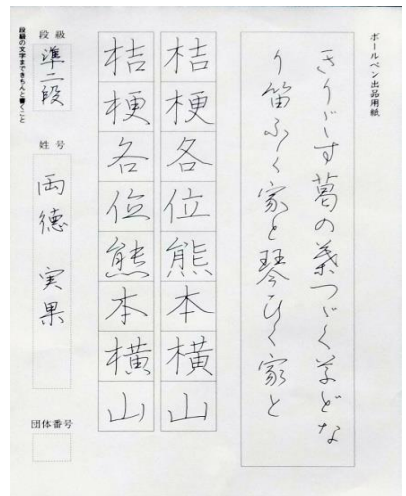 ボールペン出品用紙
きり〴〵す葛の葉つゞく草どな
り笛ふく家と琴ひく家と
桔梗各位熊本横山
桔梗各位熊本横山
段級
準二段
姓号
両徳 実果
団体番号
段級の文字まできちんと書くこと